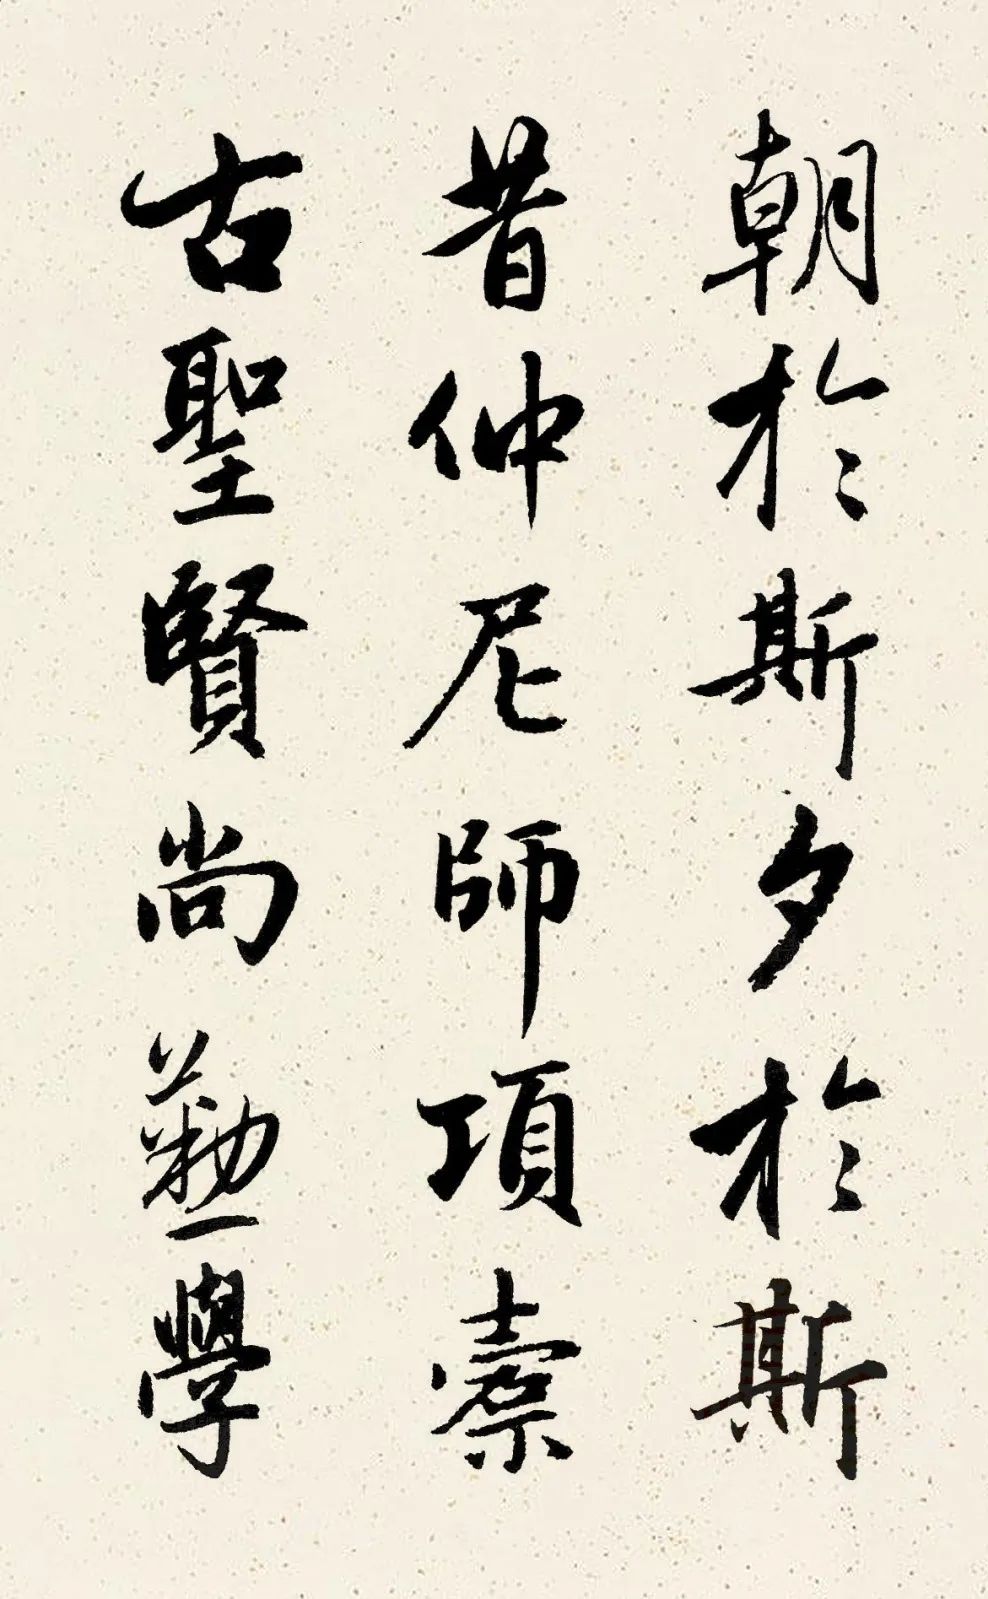 朝於斯夕於斯
昔仲尼師項橐
古聖賢尚勤學